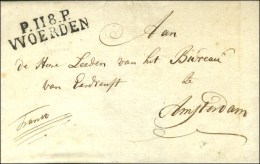 P.118.P.
WOERDEN
Aan
de Heere Leeden van het Bureau
van Eerdienst
te
Amsterdam
Franco